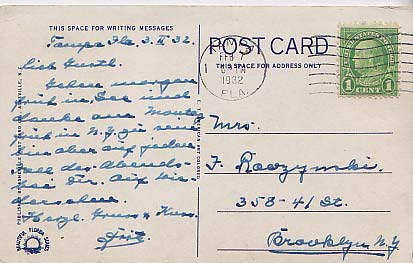 THIS SPACE FOR WRITING MESSAGES
Tampa Fla. 3. II 32.
Lieb Gustl.
Gehen morgen
früh in See und
danke am Montag
früh in N.Y. zu sein
bin aber auf jeden
Fall des Abends
bei Dir. Auf Wie-
dersehen.
Herzl. Gruss u. Kuss.
Fritz.
BEAUTIFUL FLORIDA SERIES
POST CARD
THIS SPACE FOR ADDRESS ONLY
FEB 7
1932
FLA.
1 CENT 1
Mrs.
F. Roozynski.
358-41 St.
Brooklyn N.Y.